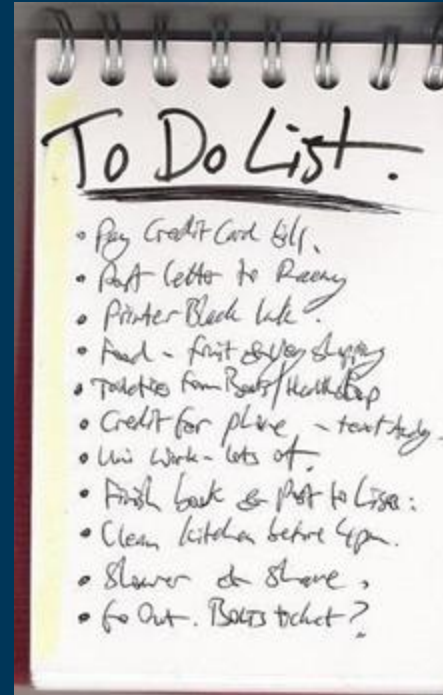 To Do List.
• Pay Credit Card bills.
• Post letter to
• Printer Black Ink.
• Food - fruit & veg shopping
• Toiletries from Boots/Healthshop
• Credit for phone - text
• Uni Work - lots of.
• Finish book & Post to Lisa.
• Clean kitchen before 4pm.
• Shower & Shave.
• Go Out. ticket?